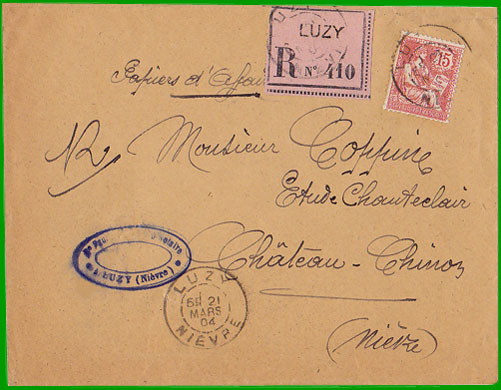 LUZY
R N° 410
15
Papiers d'Affaires
R Monsieur Coppine
Etude Chanteclair
Château-Chinon
(Nièvre)
Notaire
LUZY (Nièvre)
LUZY
21
MARS
04
NIÈVRE